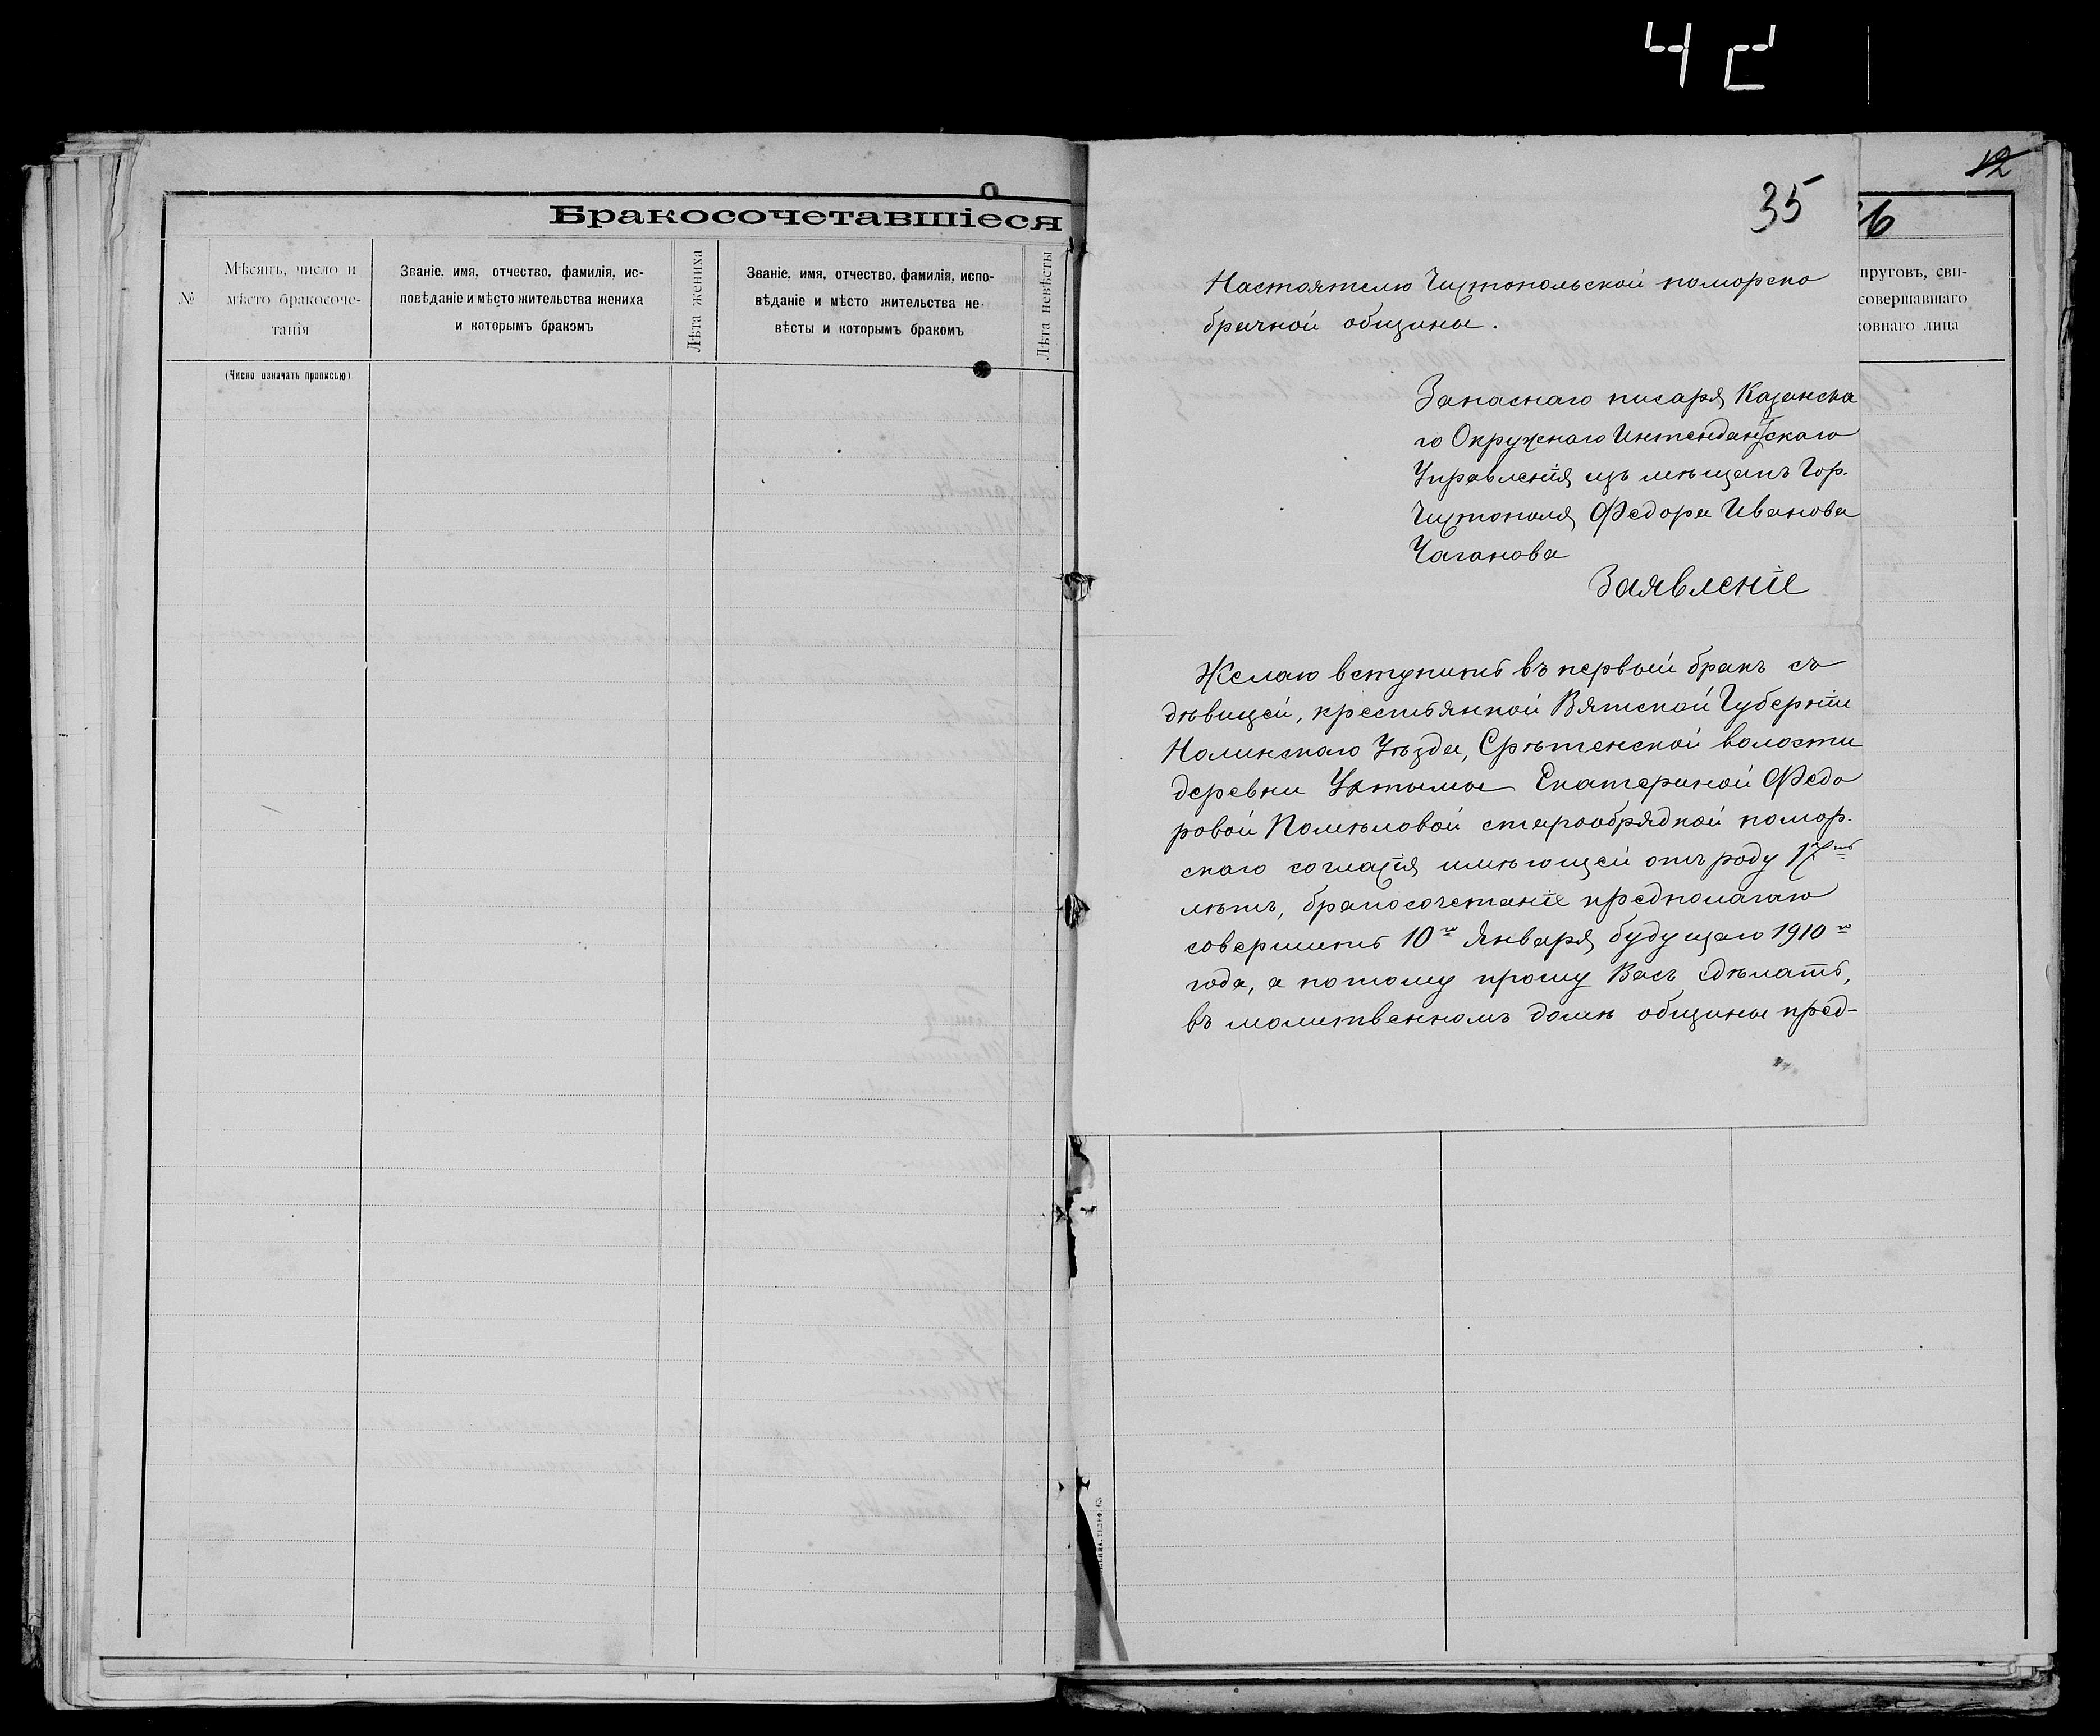 42
Бракосочетавшіеся
№
Мѣсяцъ, число и
мѣсто бракосоче-
танія
Званіе, имя, отчество, фамилія, ис-
повѣданіе и мѣсто жительства жениха
и которымъ бракомъ
Лѣта жениха
Званіе, имя, отчество, фамилія, испо-
вѣданіе и мѣсто жительства не-
вѣсты и которымъ бракомъ
Лѣта невѣсты
(Число означать прописью)
35
Настоятелю Чистопольской поморско
брачной общины.
Запаснаго писаря Казанска
го Окружнаго Интендантскаго
Управленія изъ мѣщанъ Гор.
Чистополя Федора Иванова
Чаганова
Заявленіе
Желаю вступить въ первый бракъ съ
дѣвицей, крестьянкой Вятской Губерніи
Нолинскаго Уѣзда, Срѣтенской волости
деревни Екатериной Федо
ровой Помѣловой старообрядкой помор-
скаго согласія имѣющей отъ роду 17ть
лѣтъ, бракосочетаніе предполагаю
совершить 10го Января будущаго 1910го
года, а потому прошу Васъ сдѣлать,
въ молитвенномъ домѣ общины пред-
12
16
пруговъ, сви-
совершавшаго
ховнаго лица